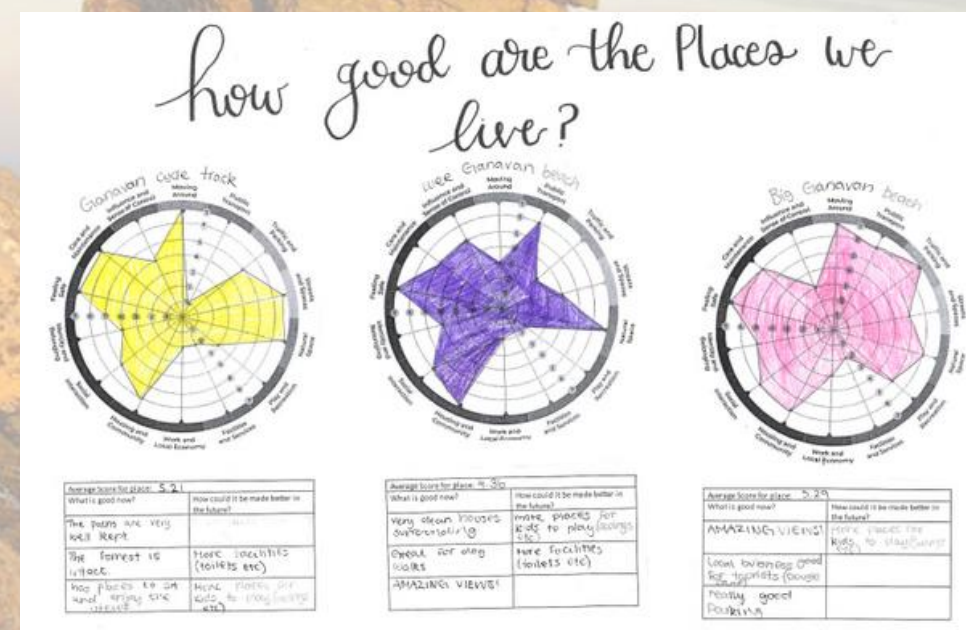 how good are the Places we
live?
Ganavan cycle track
wee Ganavan beach
Big Ganavan beach
Moving
Around
Public
Transport
Traffic and
Parking
Streets
and Spaces
Natural
Space
Play and
Recreation
Facilities
and Services
Work and
Local Economy
Housing and
Community
Social
Interaction
Identity and
Belonging
Feeling
Safe
Care and
Maintenance
Influence and
Sense of Control
Moving
Around
Public
Transport
Traffic and
Parking
Streets
and Spaces
Natural
Space
Play and
Recreation
Facilities
and Services
Work and
Local Economy
Housing and
Community
Social
Interaction
Identity and
Belonging
Feeling
Safe
Care and
Maintenance
Influence and
Sense of Control
Moving
Around
Public
Transport
Traffic and
Parking
Streets
and Spaces
Natural
Space
Play and
Recreation
Facilities
and Services
Work and
Local Economy
Housing and
Community
Social
Interaction
Identity and
Belonging
Feeling
Safe
Care and
Maintenance
Influence and
Sense of Control
Average Score for place: 5.21
What is good now?
How could it be made better in
the future?
The paths are very
well kept
The forrest is
intact.
More facilities
(toilets etc)
has places to sit
and enjoy the
views
More places for
kids to play (swings
etc)
Average Score for place: 4.36
What is good now?
How could it be made better in
the future?
very clean houses
surrounding
more places for
kids to play (swings
etc)
Great for dog
walks
More facilities
(toilets etc)
AMAZING VIEWS!
Average Score for place 5.29
What is good now?
How could it be made better in
the future?
AMAZING VIEWS!
More places for
kids to play (swings
etc)
Local business good
for tourists
really good
Parking